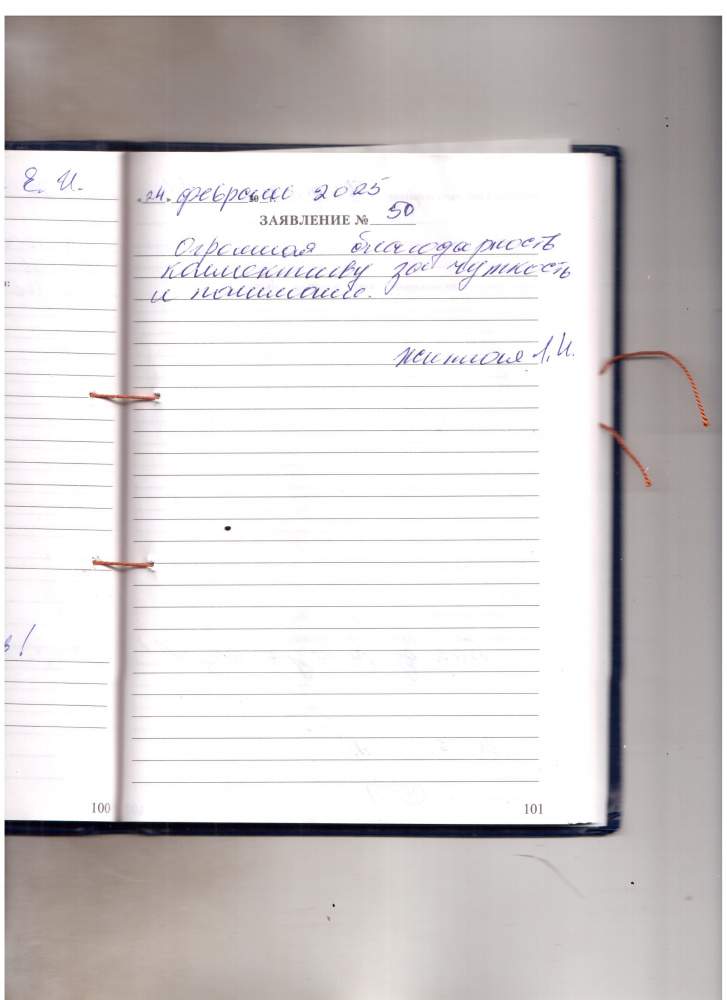 Е. И.
«24» февраля 2025
ЗАЯВЛЕНИЕ № 50
Огромная благодарность
коллективу за чуткость
и понимание.
Л. И.
в!
100
101